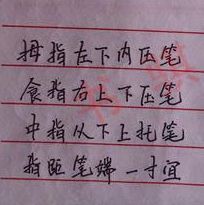 拇指左下内压笔
食指右上下压笔
中指从下上托笔
指距笔端一寸宜